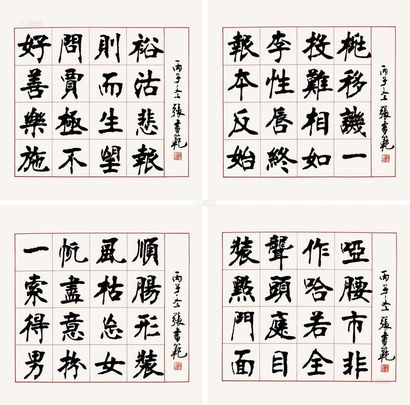 好問則裕
善賈而沽
樂極生悲
施不望報
丙子冬張書範
報李投桃
本性難移
反唇相譏
始終如一
丙子冬張書範
一帆風順
索盡枯腸
得意忘形
男扮女裝
丙子冬張書範
裝聾作啞
點頭哈腰
門庭若市
面目全非
丙子冬張書範